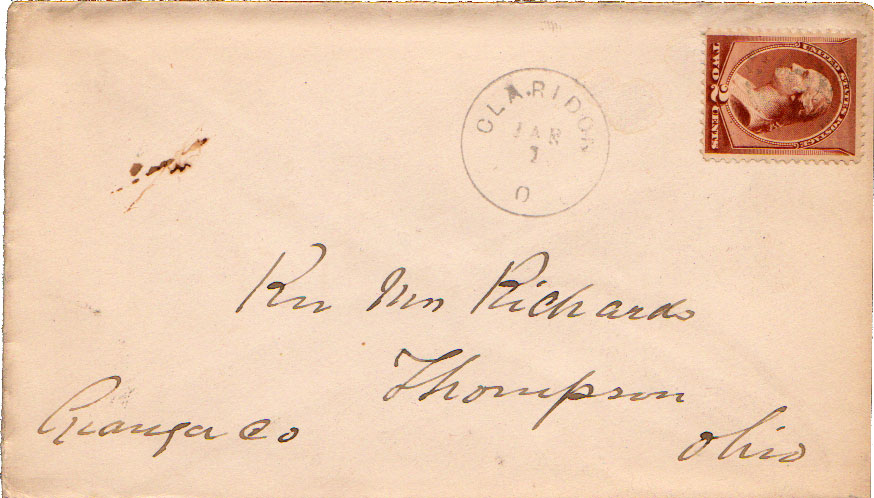 CLARIDON
JAN
7
O
UNITED STATES POSTAGE
TWO 2 CENTS
Rev Wm Richards
Thompson
Geauga Co
Ohio